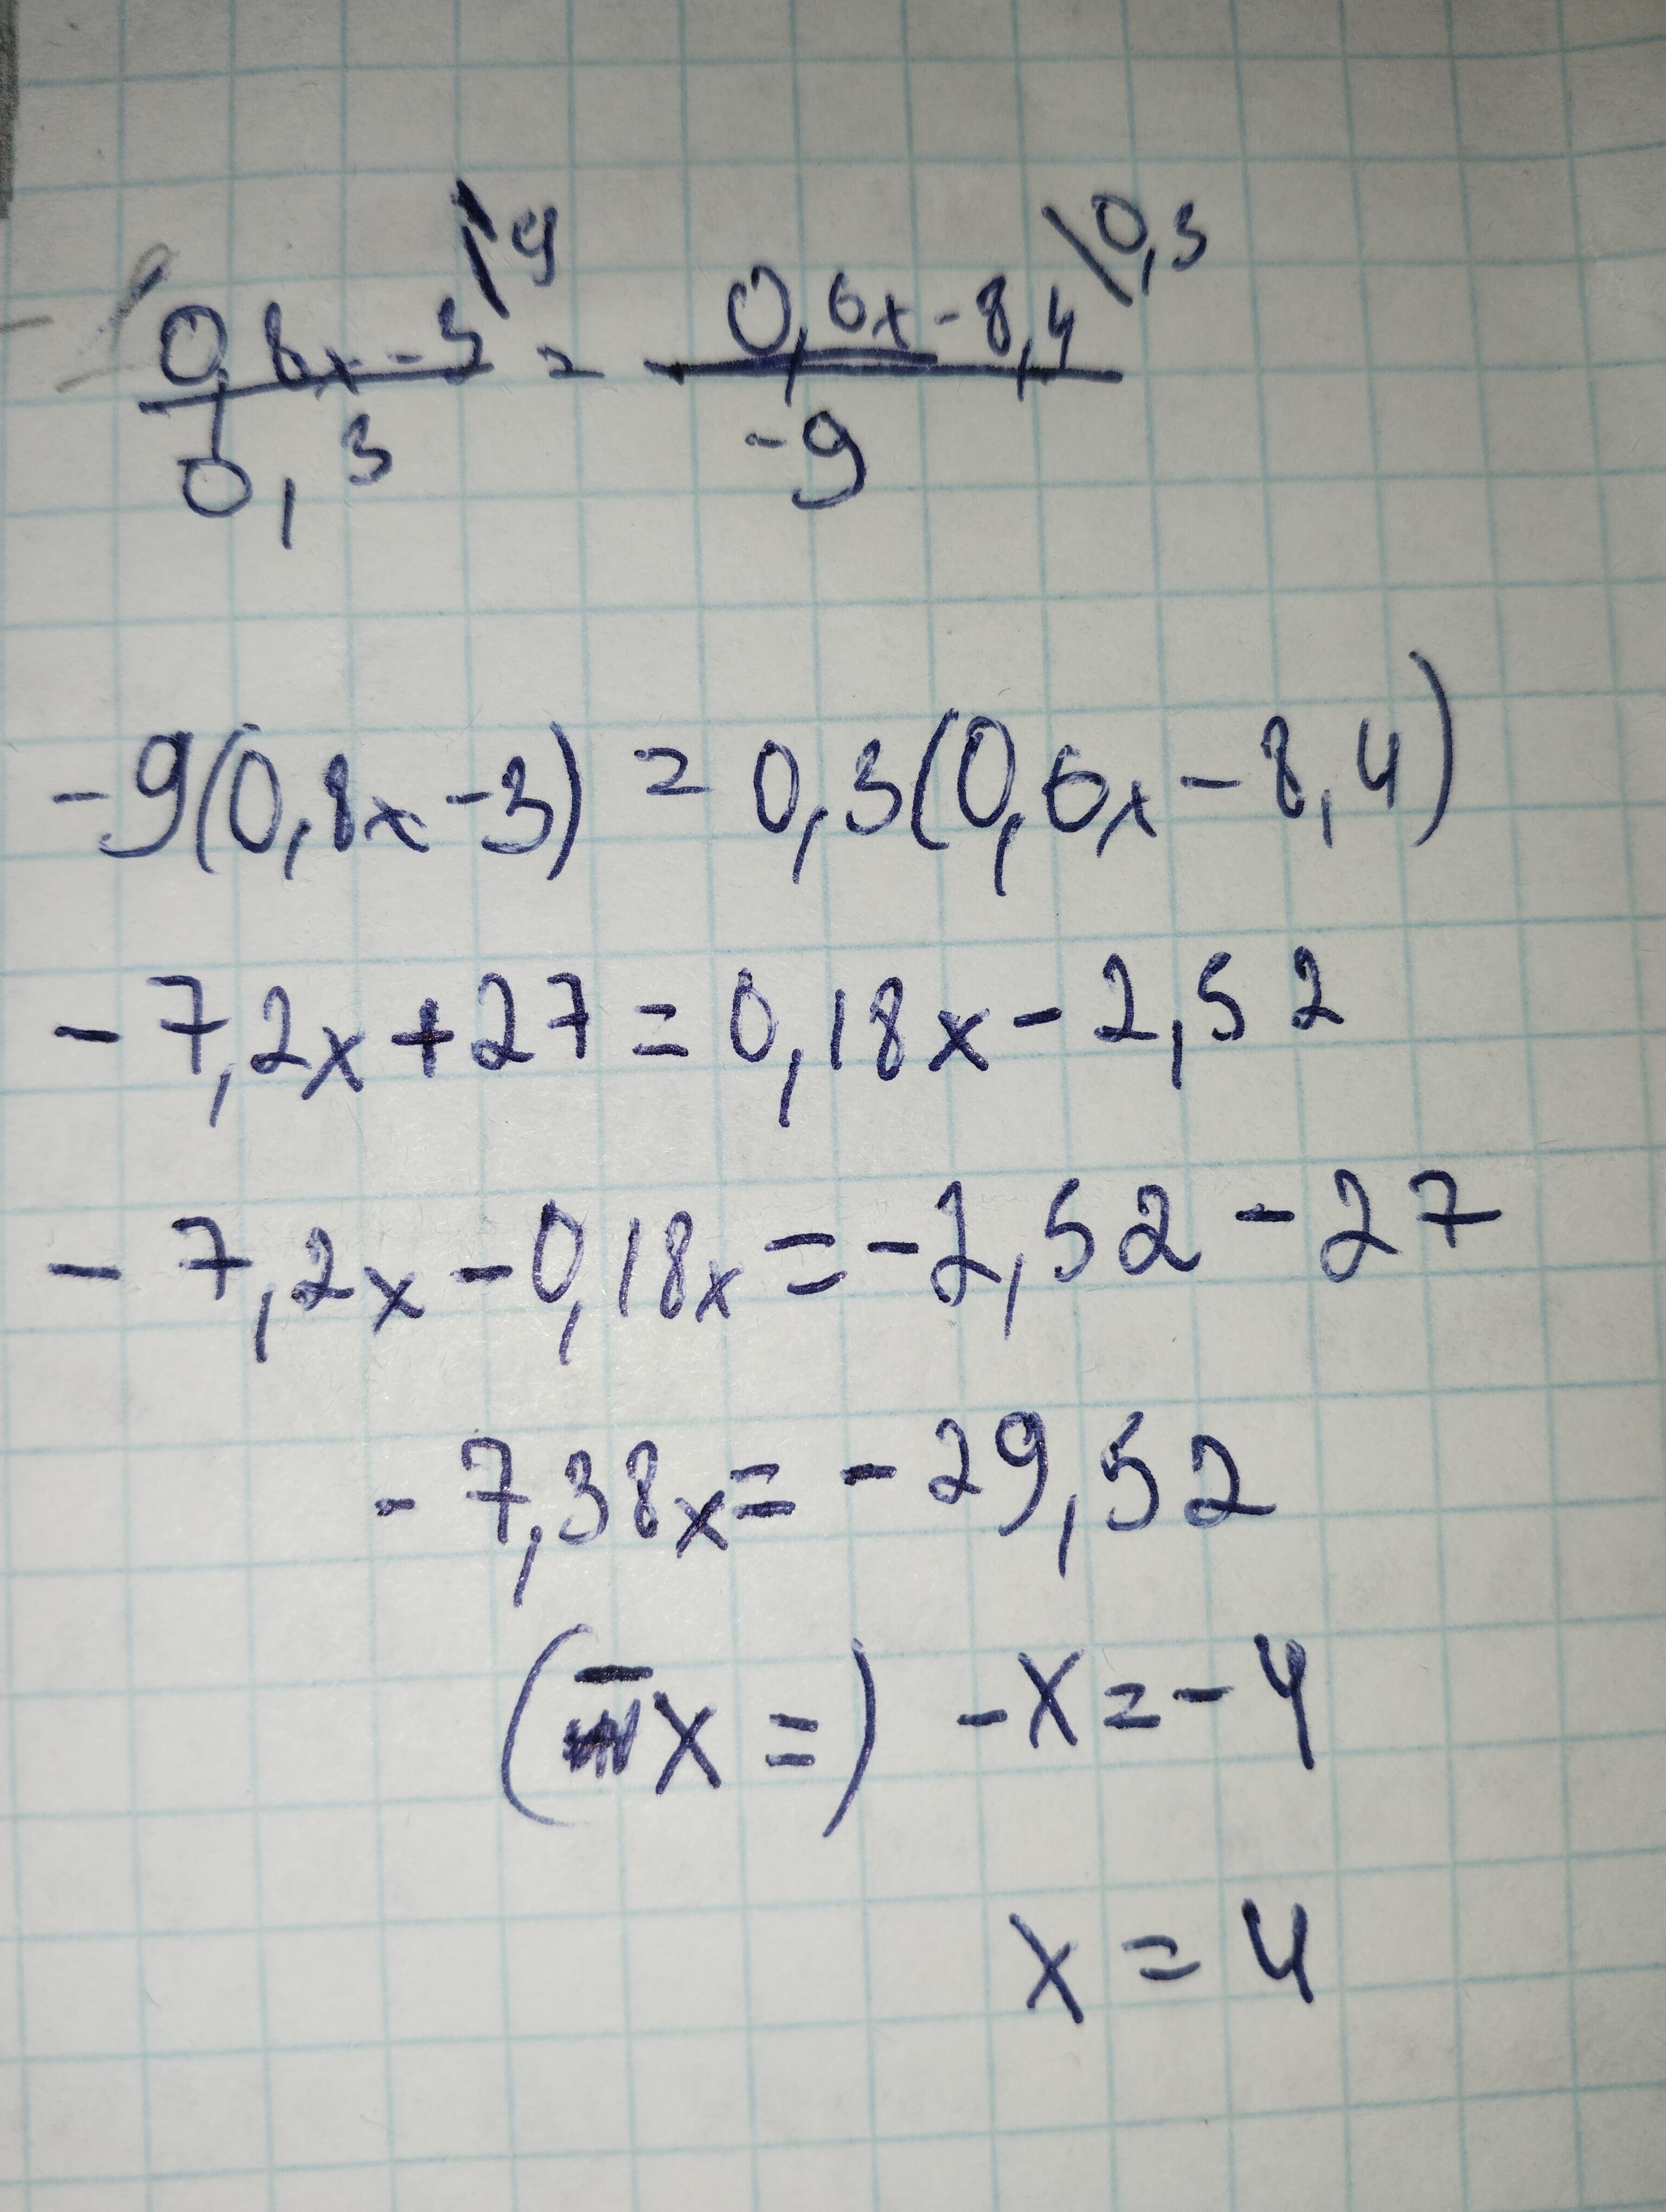 \9 \0,3
0,8x-3 = 0,6x-8,4
0,3 -9
-9(0,8x-3) = 0,3(0,6x-8,4)
-7,2x+27=0,18x-2,52
-7,2x-0,18x=-2,52-27
-7,38x=-29,52
(-x=) -x=-4
x=4